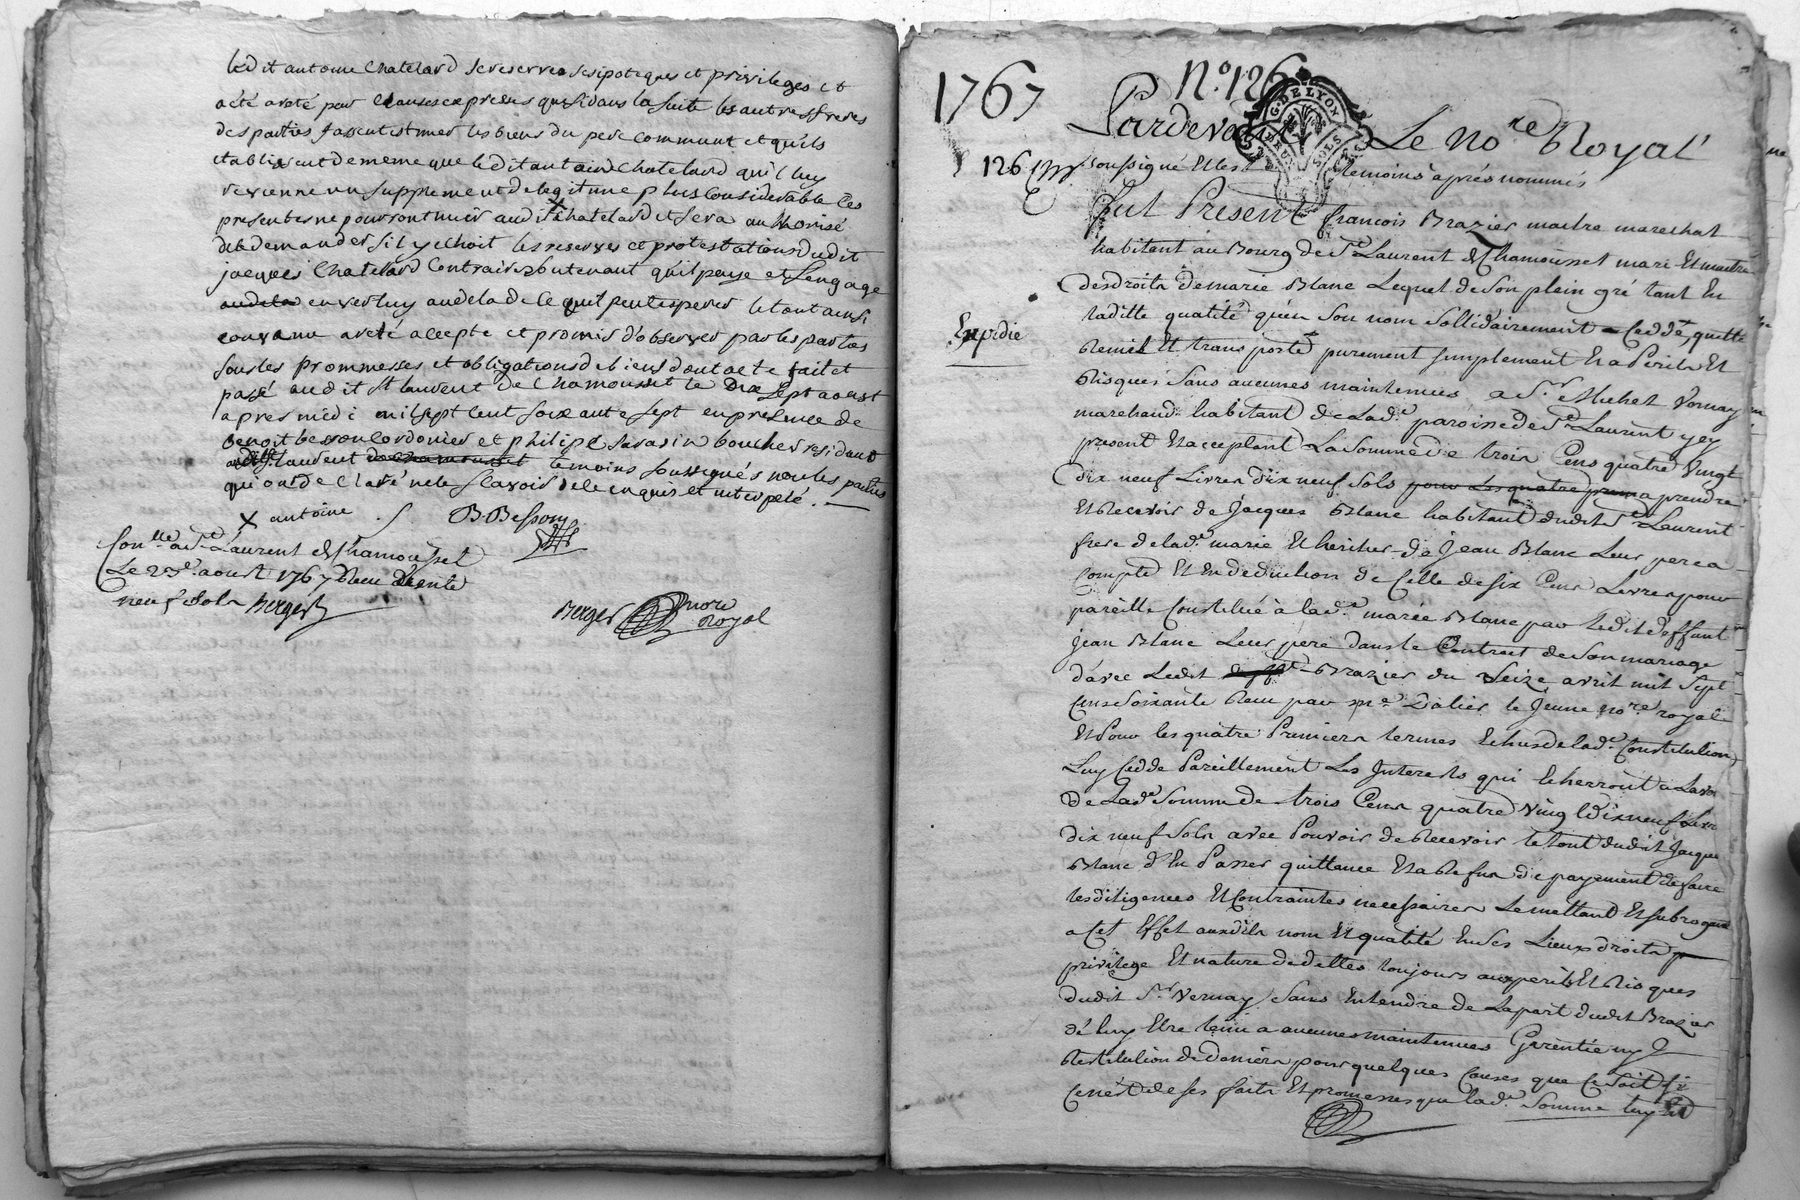 ledit antoine Chatelard se reserve ses ipoteques et privileges et
a été areté pour clauses expresses que si dans la suite les autres freres
des parties fassent estimer les biens du pere commun et quils
etablissent de meme que ledit antoine Chatelard qu'il luy
revienne un supplement de legitime plus considerable les
presentes ne pourront nuir audit x Chatelard et sera authorisé
de le demander sil y echoit les reserves et protestations dudit
jacques Chatelard Contraires soutenant quil paye et s'engage
envers luy audela de ce quil peut esperer le tout ainsi
convenu areté accepté et promis d'observer par les parties
sous les promesses et obligations de biens dont acte fait et
passé audit St laurent de Chamousset le dix sept aoust
apres midi mil sept cent soixante sept en presence de
benoit besson cordonier et philipe sarasin boucher residant
audit St laurent de Chamousset temoins soussignés non les parties
qui ont declaré ne le sçavoir de ce enquis et interpelé.
x antoine B. Besson
Con.lle a St Laurent de Chamousset
Le 23e aoust 1767 Receu trente
neuf sols Berger
Berger nore
royal
1767 No. 126
Pardevant Le Nore Royal
126 soussigné Et les temoins après nommés
Fut Present francois Brazier maitre marechal
habitant au Bourg de St Laurent de Chamousset mari Et maitre
des droits de marie Blanc Lequel de Son plein gré tant En
laditte qualité qu'en Son nom Sollidairement a Ceddé, quitté
Expedié
Remis Et transporté purement simplement Et a Perils Et
Risques Sans aucunes maintenues a Sr. Michel Vernay
marchand habitant de Lade. paroisse de St Laurent y ey
present Et acceptant La Somme de trois Cens quatre Vingt
Dix neuf Livres dix neuf sols pour Les quatre prem a prendre
Et Recevoir de Jacques Blanc habitant dudit St Laurent
frere de lade. marie Et heritier de Jean Blanc Leur pere a
Compte Et En deduction de Celle de Six Cens Livres pour
pareille Constituée à lade. marie Blanc par Ledit deffunt
Jean Blanc Leur pere dans le Contrat de Son mariage
d'avec Ledit Brazier du Seize avril mil Sept
Cens Soixante Receu par Me. Dalier le Jeune nore. royal
Et Pour les quatre Premiers termes Echus de lade. Constitution
Luy Cedde Pareillement Les Interests qui
de Lade Somme de trois Cens quatre Vingt Dix neuf Livres
dix neuf Sols avec Pouvoir de Recevoir le tout dudit Jacques
Blanc d'En Passer quittance Et a Refus de payement de faire
les diligences Et Contraintes necessaires Le mettant Et subrogeant
a Cet Effet auxdits nom Et qualité En Ses Lieux droits
privilege Et nature de dettes toujours aux perils Et Risques
dudit Sr. Vernay Sans Entendre de La part dudit Brazier
de luy Etre tenu a aucunes maintenues Garentie ny
Restitution de deniers pour quelques Causes que Ce Soit si
Ce n'est de Ses faits Et promesses que lade. Somme luy Est